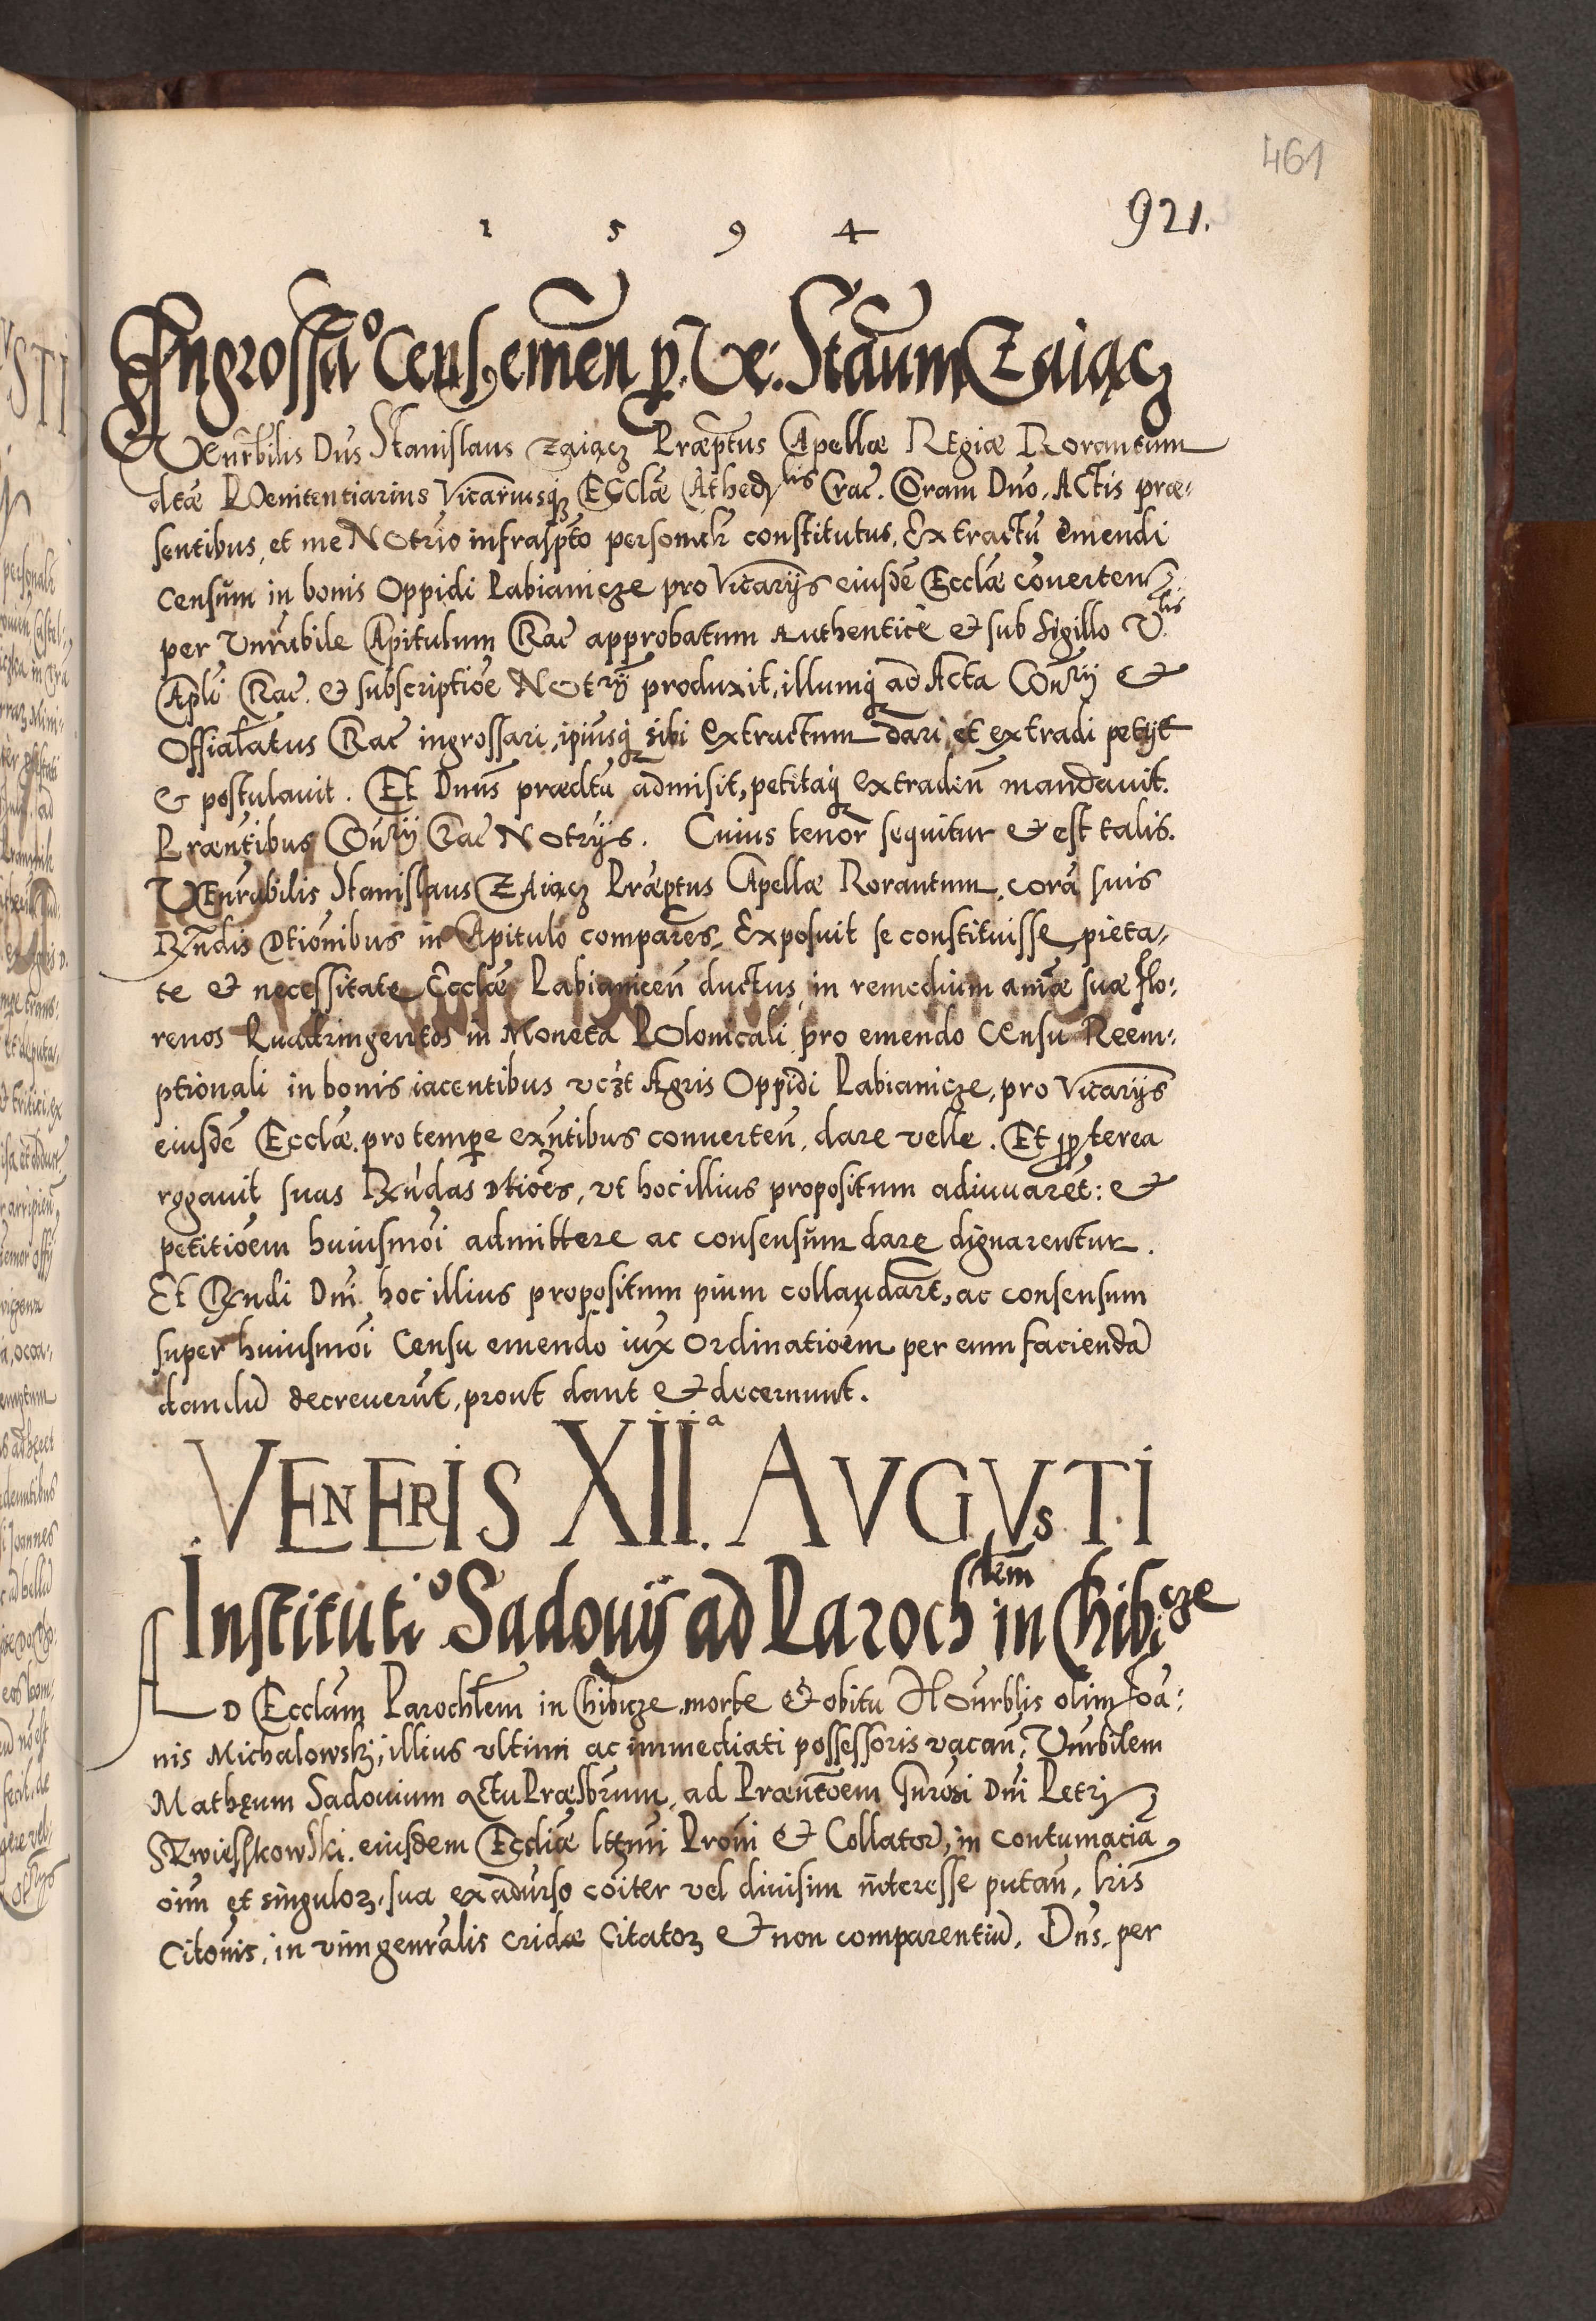 461
1 5 9 4
921.
Ingrossãº Censꝯ emẽn p. Ve: Staũm Zaiącz
Venrbilis Dns Stanislaus Zaiącz Præptus Capellæ Regiæ Rorantum
Pœnitentiarius Vicariusq Ecclæ Cathedlis Crac. Coram Dno. Actis præ-
sentibus, et me Notrio infraspto personalr constitutus, Extractũ emendi
Censum in bonis Oppidi Pabianicze pro Vicarijs eiusdẽ Ecclæ cõuerten
per Vnrabile Capitulum Crac approbatum Authenticè et sub sigillo V.lis
Capli Crac. et subscriptiõe Notrij produxit, illumq ad Acta Conrij et
Offialatus Crac ingrossari, ipiusq sibi extractum dari et extradi petijt
et postulauit. Et Dnus prædtũ admisit, petitaq extradeñ mandauit.
Præntibus Conrij Crac Notrijs. Cuius tenor sequitur et est talis.
Venrabilis Stanislaus Zaiącz Præptus Capellæ Rorantum, corã suis
Rndis Dtionibus in Capitulo comparẽs, Exposuit se constituisse, pieta-
te et necessitate Ecclæ Pabianiceñ ductus, in remedium animæ suæ flo-
renos Quadringentos in Moneta Polonicali pro emendo Censu Reem-
ptionali in bonis iacentibus vczt Agris Oppidi Pabianicze, pro Vicarijs
eiusdẽ Ecclæ pro tempe exñtibus conuerteñ, dare velle. Et ppterea
rogauit suas Rndas Dtiões, vt hoc illius propositum adiuuarẽt: et
petitiõem huiusmõi admittere ac consensum dare dignarentur.
Et Rndi Dni hoc illius propositum pium collaudarũt, ac consensum
super huiusmõi Censu emendo iux ordinatiõem per eum faciendã
dandũ decreuerũt, prout dant et decernunt.
VENERIS XII.ª AVGVSTI
Institutiº Sadouij ad Parochlem in Chibicze
AD Ecclam Parochlem in Chibicze morte et obitu Honrblis olim Joã-
nis Michalowski, illius vltimi ac immediati possessoris vacañ, Vnrbilem
Mathęum Sadouium actu Præsbrum, ad Præntõem Gnrosi Dni Petri
Szwiesskowski eiusdem Eccliæ lttmi Proni et Collator, in contumaciã
oim et singuloꝝ sua ex adurso cõiter vel diuisim interesse putañ, lris
Citõnis, in vim genralis cridæ Citatoꝝ et non comparentiũ. Dns. per